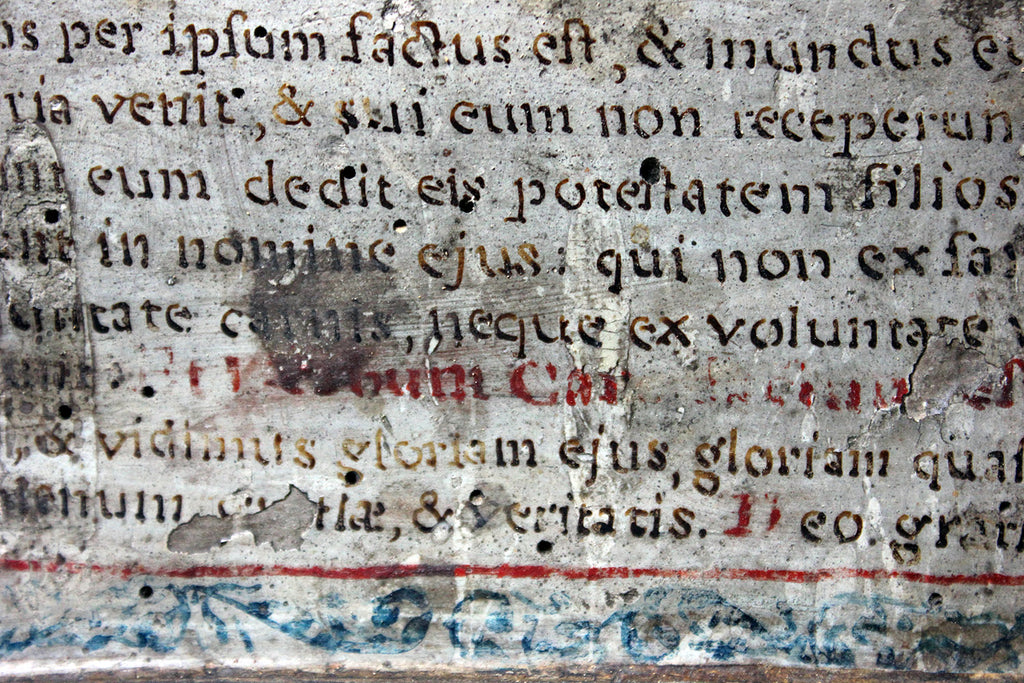 os per ipsum factus est, & mundus eu
ria venit, & sui eum non receperun
unt eum dedit eis potestatem filios
unt in nomine ejus: qui non ex sa
untate carnis, neque ex voluntate v
Et Verbum Car est
, & vidimus gloriam ejus, gloriam quas
lenum tiæ, & veritatis. Deo grati